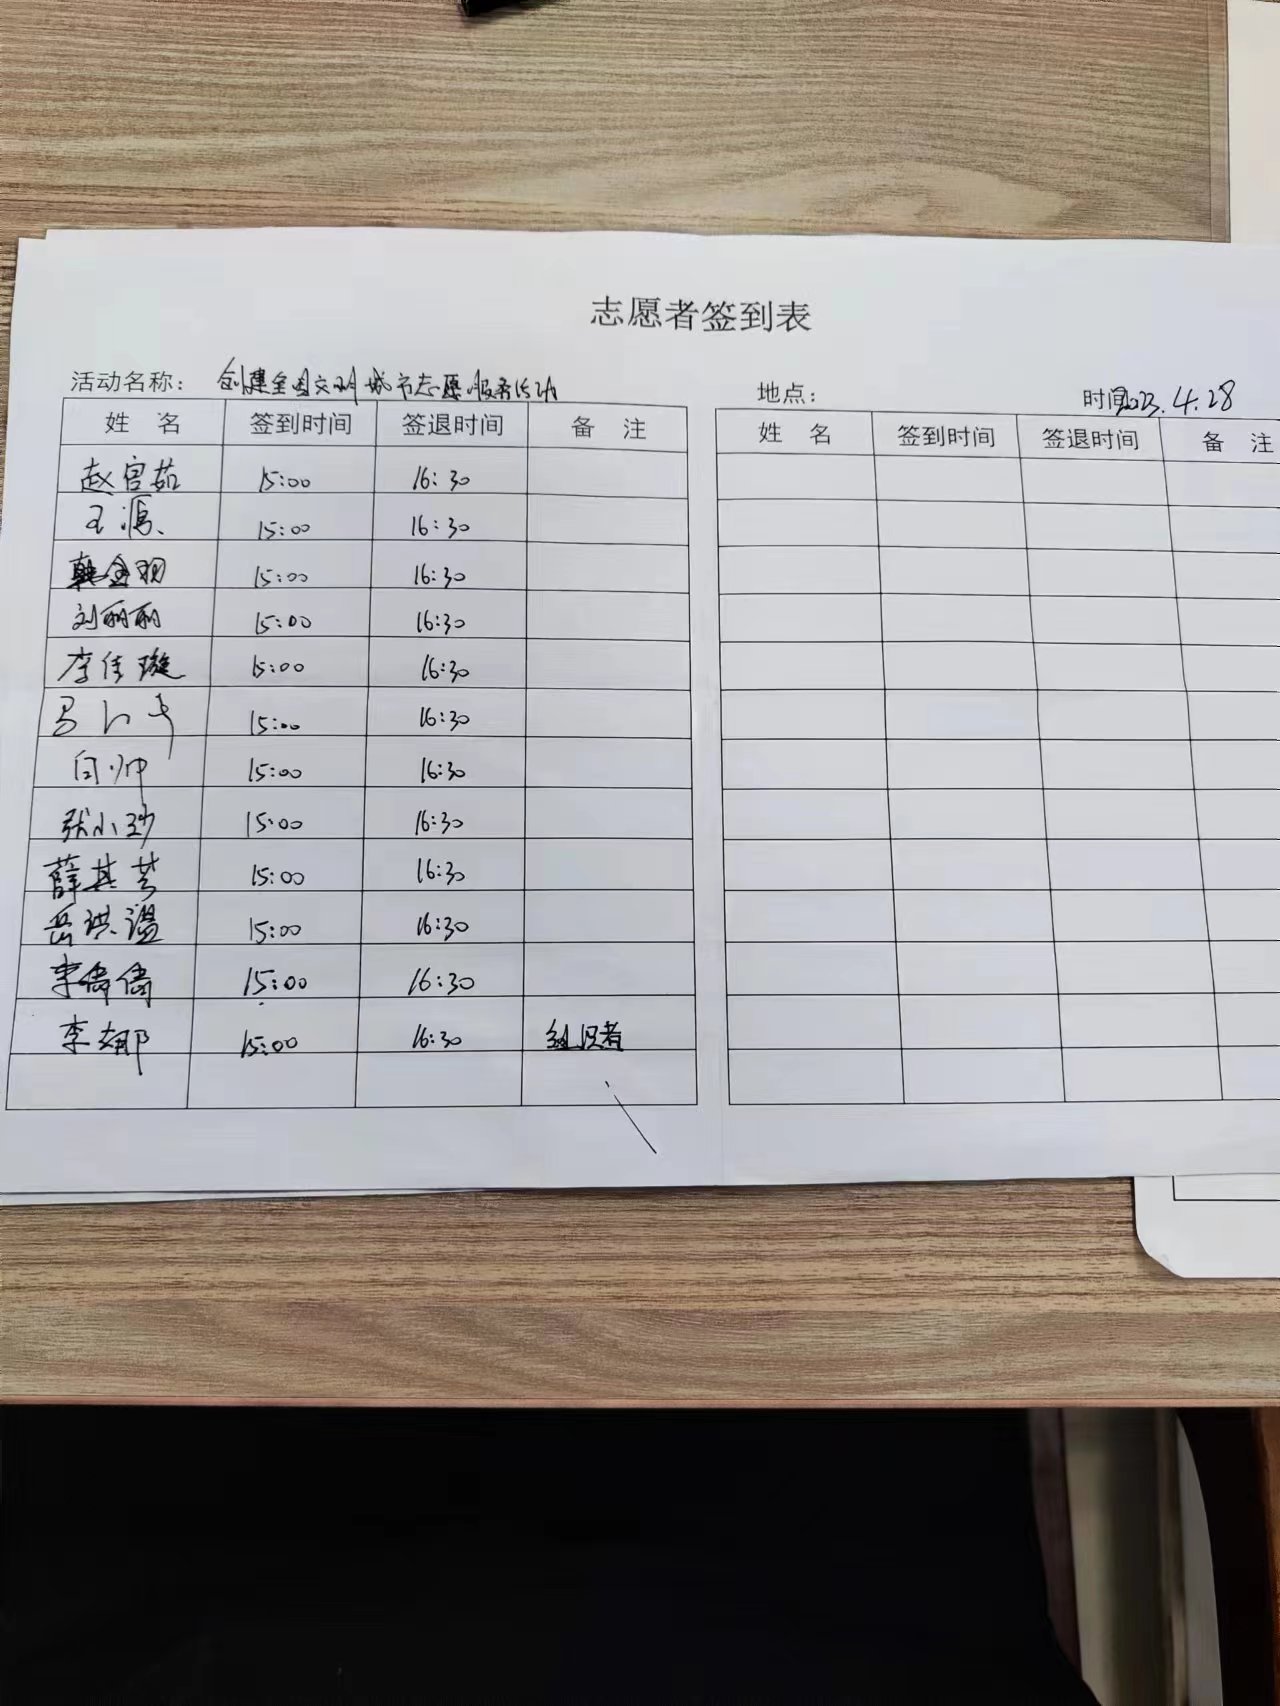 志愿者签到表
活动名称： 创建全国文明城市志愿服务活动 地点： 时间2023.4.28
姓 名 签到时间 签退时间 备 注 姓 名 签到时间 签退时间 备 注
赵宫茹 15:00 16:30
王源 15:00 16:30
韩金玥 15:00 16:30
刘丽丽 15:00 16:30
李佳璇 15:00 16:30
15:00 16:30
闫帅 15:00 16:30
张小 15:00 16:30
薛其芳 15:00 16:30
岳洪温 15:00 16:30
李倩倩 15:00 16:30
李娜 15:00 16:30 组织者